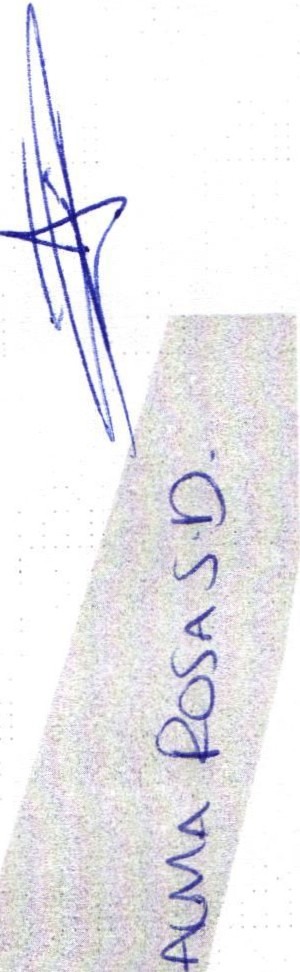 ALMA ROSAS D.